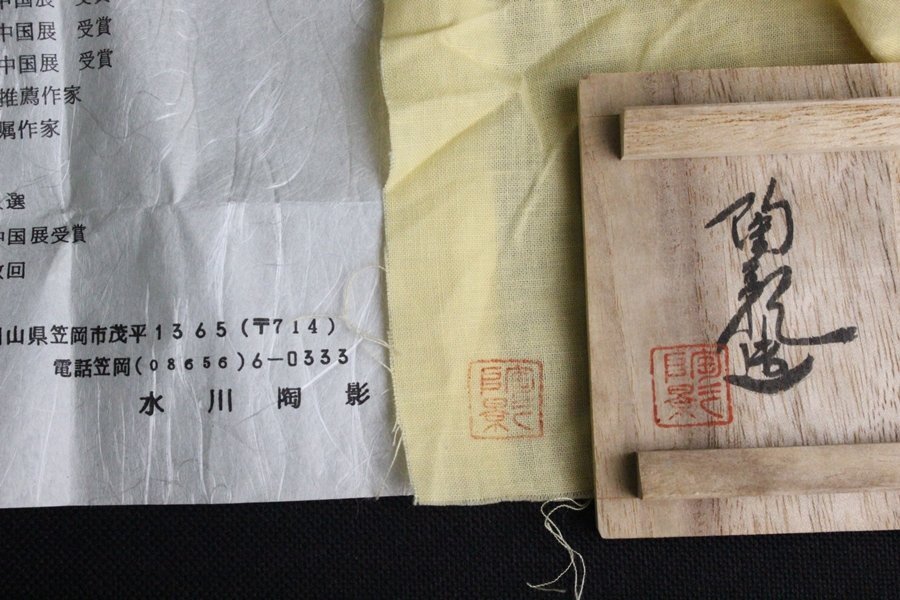 中国展 受賞
中国展 受賞
中国展 受賞
推薦作家
嘱作家
選
中国展受賞
回
山県笠岡市茂平1365(〒714)
電話笠岡(08656)6-0333
水川陶影
陶影造